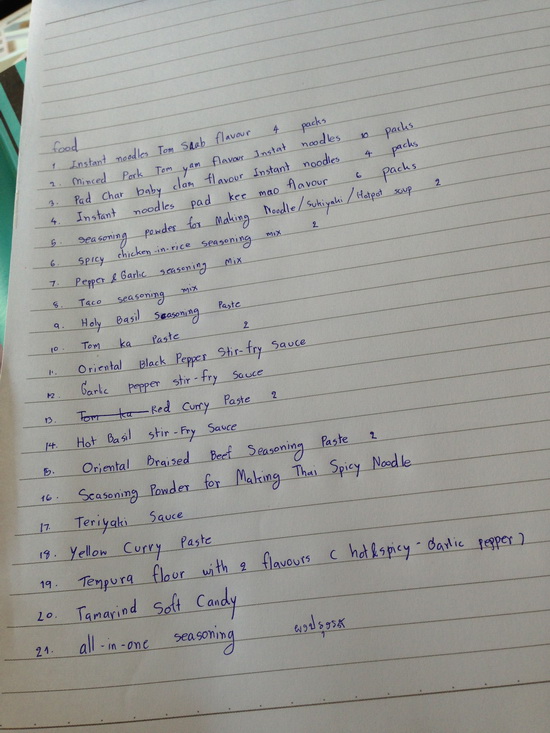 food
1 Instant noodles Tom Saab flavour 4 packs
2. Minced Pork Tom yam flavour Instat noodles 10 packs
3. Pad Char baby clam flavour Instant noodles 4 packs
4. Instant noodles pad kee mao flavour 6 packs
5. seasoning powder for Making Noodle/Sukiyaki/Hotpot soup 2
6. spicy chicken-in-rice seasoning mix 2
7. Pepper & Garlic seasoning mix
8. Taco seasoning mix
9. Holy Basil Seasoning Paste
10. Tom ka Paste 2
11. Oriental Black Pepper Stir-fry Sauce
12 Garlic pepper stir-fry sauce
13. Tom ka Red Curry Paste 2
14. Hot Basil stir-Fry Sauce
15. Oriental Braised Beef Seasoning Paste 2
16. Seasoning Powder for Making Thai Spicy Noodle
17. Teriyaki Sauce
18. Yellow Curry Paste
19. Tempura flour with 2 flavours ( hot&spicy - Garlic pepper )
20. Tamarind Soft Candy
21. all-in-one seasoning ผงปรุงรส